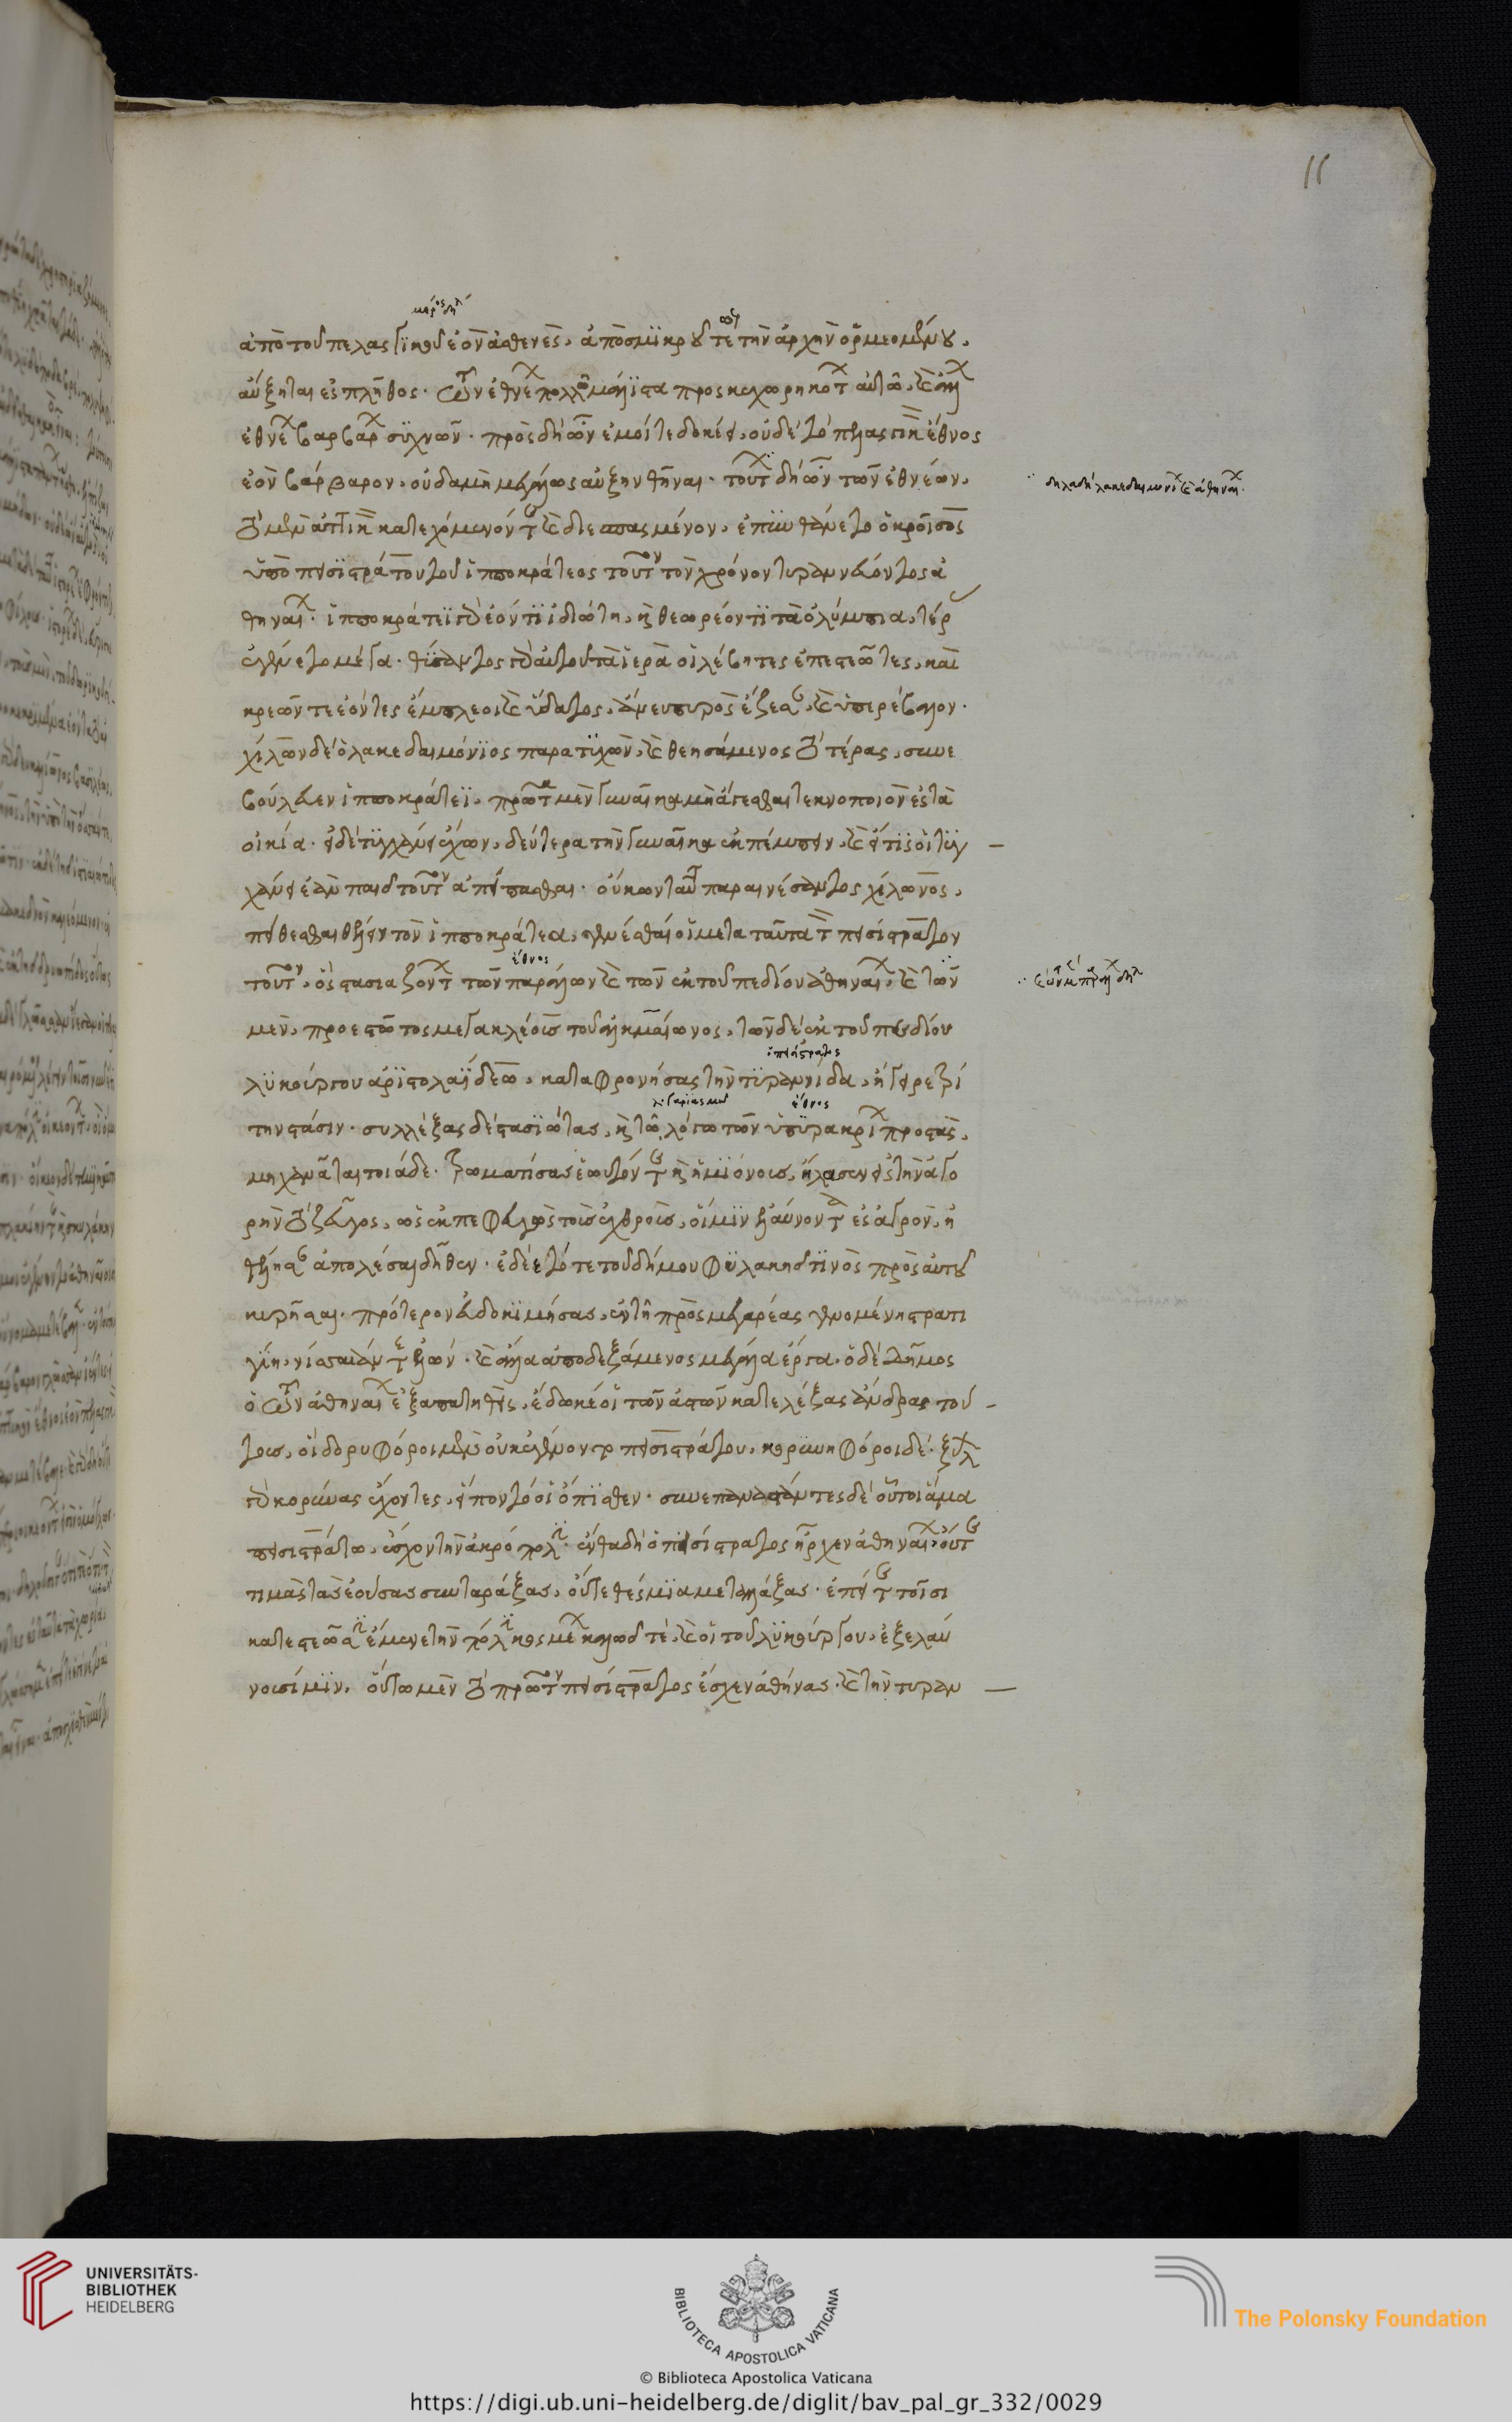 11
μέρος δηλ
ἀπὸ τοῦ πελασγικοῦ ἐὸν ἀσθενὲς. ἀπὸ σμικροῦ τε τὴν ἀρχὴν ὁρμεομένου.
αὔξηται ἐς πλῆθος. τῶν ἐθνέων πολλῶν μάλιστα προσκεχωρηκότων αὐτῶ. καὶ ἄλλων
ἐθνέων βαρβάρων συχνῶν. πρὸς δὴ ὦν ἐμοί τε δοκέει. οὐδὲ τὸ πελασγικὸν ἔθνος
ἐὸν βάρβαρον. οὐδαμῆ μεγάλως αὐξηνθῆναι. τούτων δὴ ὦν τῶν ἐθνέων.
δηλαδὴ λακεδαιμονίων καὶ ἀθηναίων.
τὸ μὲν ἀττικὸν κατεχόμενόν τε καὶ διεσπασμένον. ἐπυνθάνετο ὁ κροῖσος
ὑπὸ πεισιστράτου τοῦ ἱπποκράτεος τοῦτον τὸν χρόνον τυραννεύοντος ἀ
θηναίων. ἱπποκράτεϊ γὰρ ἐόντι ἰδιώτη. καὶ θεωρέοντι τὰ ὀλύμπια. τέρας
ἐγένετο μέγα. θύσαντος γὰρ αὐτοῦ τὰ ἱερὰ οἱ λέβητες ἐπεστεῶτες. καὶ
κρεῶν τε ἐόντες ἔμπλεοι καὶ ὕδατος. ἄνευ πυρὸς ἔζεσαν. καὶ ὑπερέβαλον.
χίλων δὲ ὁ λακεδαιμόνιος παρατυχὼν. καὶ θεησάμενος τὸ τέρας. συνε
βούλευεν ἱπποκράτεϊ. πρῶτα μὲν γυναῖκα μὴ ἄγεσθαι τεκνοποιὸν ἐς τὰ
οἰκία. εἰ δὲ τυγχάνει ἔχων. δεύτερα τὴν γυναῖκα ἐκπέμπειν. καὶ εἴ τις οἱ τυγ
χάνει ἐὼν παῖς τοῦτον ἀπείπασθαι. οὔκων ταῦτα παραινέσαντος χίλωνος.
πείθεσθαι θέλειν τὸν ἱπποκράτεα. γενέσθαι οἱ μετὰ ταῦτα τὸν πεισίστρατον
ἔθνος
τοῦτον. ὃς στασιαζόντων τῶν παράλων καὶ τῶν ἐκ τοῦ πεδίου ἀθηναίων. καὶ τῶν
μὲν. προεστῶτος μεγακλέος τοῦ ἀλκμαίωνος. τῶν δὲ ἐκ τοῦ πεδίου
ὁ πεισίστρατος
λυκούργου ἀριστολαΐδεω. καταφρονήσας τὴν τυραννίδα. ἤγειρε τρί
ἔθνος
την στάσιν. συλλέξας δὲ στασιώτας. καὶ τῶ λόγω τῶν ὑπερακρίων προστὰς.
μηχανᾶται τοιάδε. τρωματίσας ἑωυτόν τε καὶ ἡμιόνους. ἤλασεν ἐς τὴν ἀγο
ρὴν τὸ ζεῦγος. ὡς ἐκπεφευγὼς τοὺς ἐχθροὺς. οἵ μιν ἐλαύνοντα ἐς ἀγρὸν. ἠ
θέλησαν ἀπολέσαι δῆθεν. ἐδέετό τε τοῦ δήμου φυλακῆς τινὸς πρὸς αὐτοῦ
κυρῆσαι. πρότερον εὐδοκιμήσας. ἐν τῆ πρὸς μεγαρέας γενομένη στρατη
γίη. νίσαιάν τε ἑλών. καὶ ἄλλα ἀποδεξάμενος μεγάλα ἔργα. ὁ δὲ δῆμος
ὁ τῶν ἀθηναίων ἐξαπατηθεὶς. ἔδωκέ οἱ τῶν ἀστῶν καταλέξας ἄνδρας τού
τους. οἳ δορυφόροι μὲν οὐκ ἐγένοντο πεισιστράτου. κορυνηφόροι δέ. ξύλων
γὰρ κορύνας ἔχοντες. εἵποντό οἱ ὄπισθεν. συνεπαναστάντες δὲ οὗτοι ἅμα
πεισιστράτω. ἔσχον τὴν ἀκρόπολιν. ἔνθα δὴ ὁ πεισίστρατος ἦρχεν ἀθηναίων. οὔτε
τιμὰς τὰς ἐούσας συνταράξας. οὔτε θέσμια μεταλλάξας. ἐπί τε τοῖσι
κατεστεῶσιν ἔνεμε τὴν πόλιν κοσμέων καλῶς τε. καὶ οἱ τοῦ λυκούργου. ἐξελαύ
νουσί μιν. οὕτω μὲν τὸ πρῶτον πεισίστρατος ἔσχεν ἀθήνας. καὶ τὴν τυραν
UNIVERSITÄTS-
BIBLIOTHEK
HEIDELBERG
BIBLIOTECA APOSTOLICA VATICANA
The Polonsky Foundation
© Biblioteca Apostolica Vaticana
https://digi.ub.uni-heidelberg.de/diglit/bav_pal_gr_332/0029